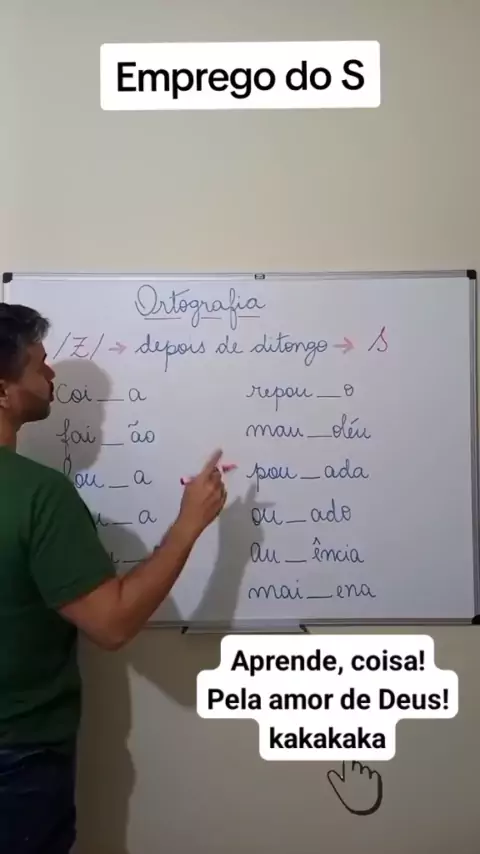 Emprego do S
Ortografia
/Z/ → depois de ditongo → S
coi _ a
fai _ ão
lou _ a
_ a
repou _ o
mau _ oléu
pou _ ada
ou _ ado
au _ ência
mai _ ena
Aprende, coisa!
Pela amor de Deus!
kakakaka